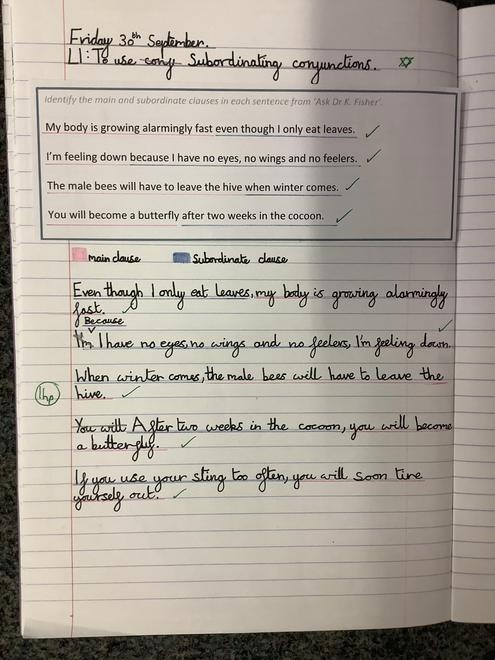 Friday 30th September.
LI: To use conj Subordinating conjunctions.
Identify the main and subordinate clauses in each sentence from 'Ask Dr K. Fisher'.
My body is growing alarmingly fast even though I only eat leaves.
I'm feeling down because I have no eyes, no wings and no feelers.
The male bees will have to leave the hive when winter comes.
You will become a butterfly after two weeks in the cocoon.
main clause Subordinate clause
Even though I only eat leaves, my body is growing alarmingly
fast.
Because
I'm I have no eyes, no wings and no feelers, I'm feeling down.
When winter comes, the male bees will have to leave the
1hp hive.
You will After two weeks in the cocoon, you will become
a butterfly.
If you use your sting too often, you will soon tire
yourself out.